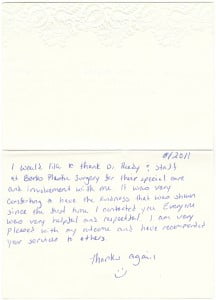 2011
I would like to thank Dr. Reedy & staff
at Berks Plastic Surgery for their special care
and involvement with me. It was very
comforting to have the kindness that was shown
since the first time I contacted you. Everyone
was very helpful and respectful. I am very
pleased with my outcome and have recommended
your services to others.
Thanks again!